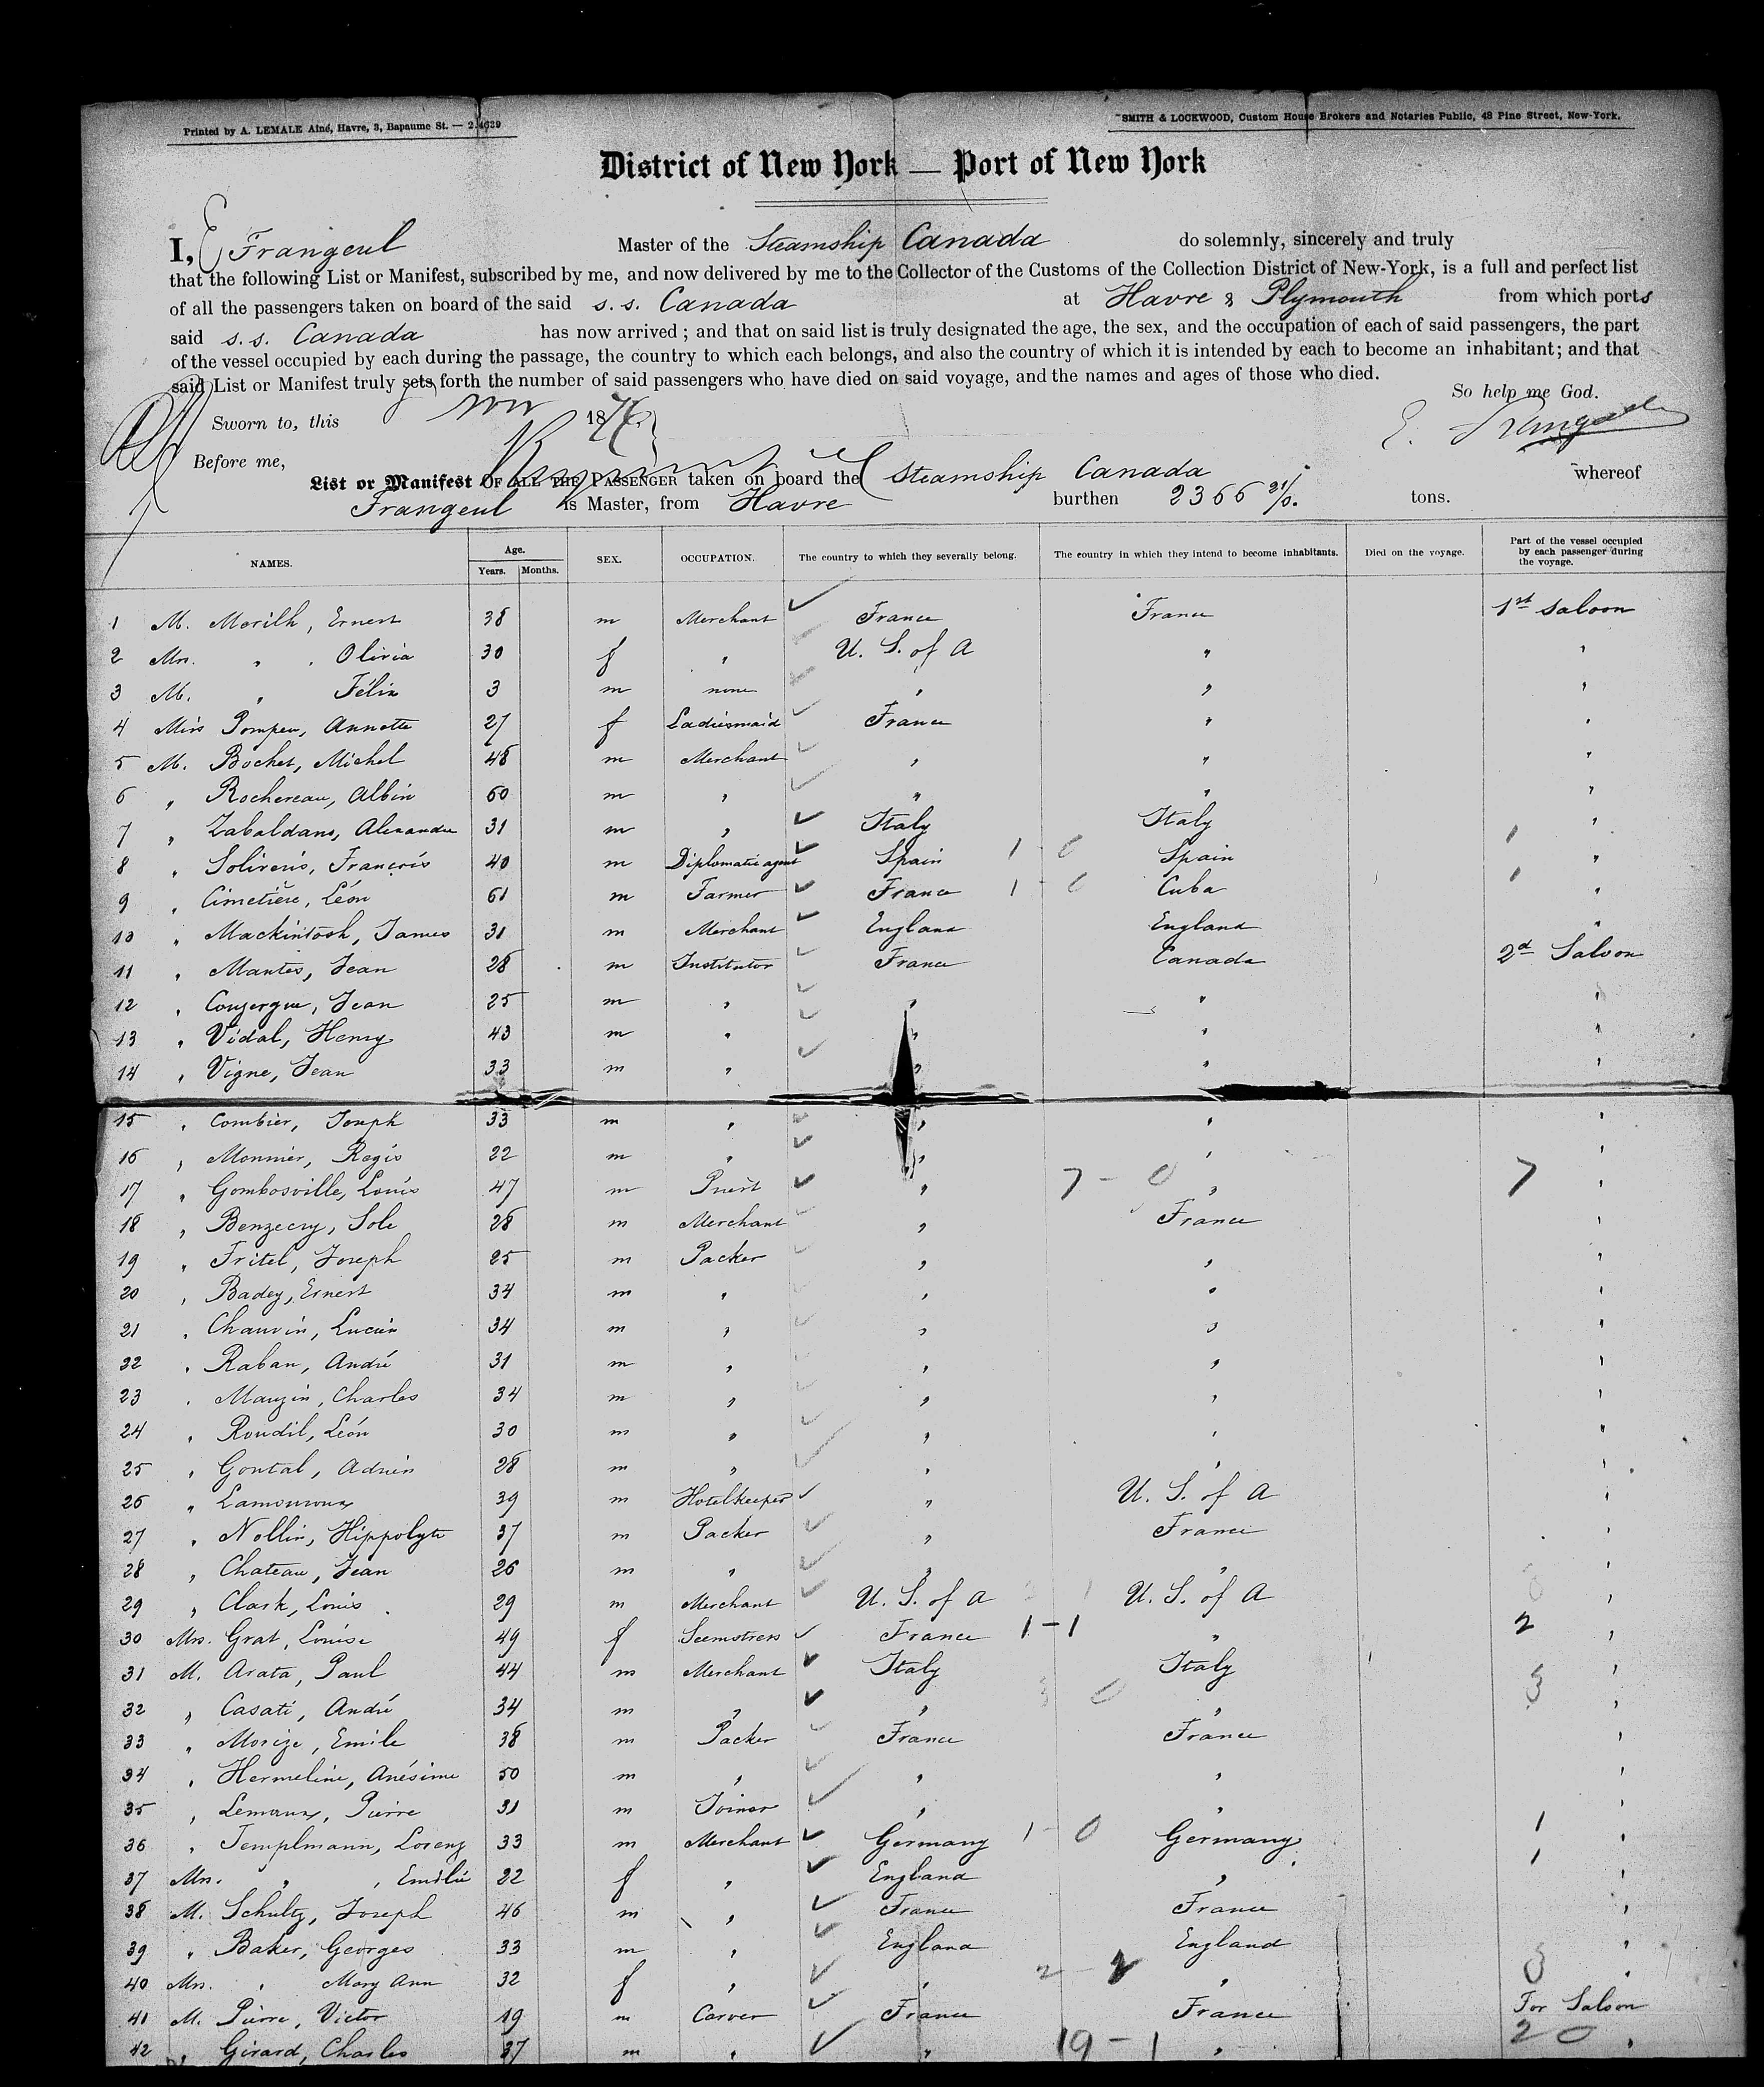 Printed by A. LEMALE Aîné, Havre, 3, Bapaume St. — 2.4629
SMITH & LOCKWOOD, Custom House Brokers and Notaries Public, 48 Pine Street, New-York.
District of New York — Port of New York
I, E Frangeul Master of the Steamship Canada do solemnly, sincerely and truly
that the following List or Manifest, subscribed by me, and now delivered by me to the Collector of the Customs of the Collection District of New-York, is a full and perfect list
of all the passengers taken on board of the said s.s. Canada at Havre & Plymouth from which ports
said s.s. Canada has now arrived; and that on said list is truly designated the age, the sex, and the occupation of each of said passengers, the part
of the vessel occupied by each during the passage, the country to which each belongs, and also the country of which it is intended by each to become an inhabitant; and that
said List or Manifest truly sets forth the number of said passengers who have died on said voyage, and the names and ages of those who died.
So help me God.
Sworn to, this nov 1876
E. Frangeul
Before me,
List or Manifest OF ALL THE PASSENGER taken on board the Steamship Canada whereof
Frangeul is Master, from Havre burthen 2366 21/0. tons.
NAMES. Age. Years. Months. SEX. OCCUPATION. The country to which they severally belong. The country in which they intend to become inhabitants. Died on the voyage. Part of the vessel occupied by each passenger during the voyage.
1 M. Morilh, Ernest 38 m Merchant France France 1st Saloon
2 Mrs. " " Olivia 30 f " U. S. of A " "
3 M. " Félix 3 m none " " "
4 Miss Pompeu, Annette 27 f Ladiesmaid France " "
5 M. Bochet, Michel 48 m Merchant " " "
6 " Rochereau, Albin 60 m " " " "
7 " Zabaldano, Alexandre 31 m " Italy Italy "
8 " Solivenis, François 40 m Diplomatic agent Spain 1 - 0 Spain 1 "
9 " Cimetière, Léon 61 m Farmer France 1 - 0 Cuba 1 "
10 " Mackintosh, James 31 m Merchant England England "
11 " Mantes, Jean 28 m Institutor France Canada 2d Saloon
12 " Couzergue, Jean 25 m " " " "
13 " Vidal, Henry 43 m " " " "
14 " Vigne, Jean 33 m " " " "
15 " Combier, Joseph 33 m " " " "
16 " Monnier, Regis 22 m " " " "
17 " Gombosville, Louis 47 m Priest " 7 - 0 " 7 "
18 " Benzecry, Sole 28 m Merchant " France "
19 " Fritel, Joseph 25 m Packer " " "
20 " Badey, Ernest 34 m " " " "
21 " Chauvin, Lucien 34 m " " " "
22 " Raban, André 31 m " " " "
23 " Mauzin, Charles 34 m " " " "
24 " Roudil, Léon 30 m " " " "
25 " Gontal, Adrien 28 m " " " "
26 " Lamouroux 39 m Hotelkeeper " U. S. of A "
27 " Nollin, Hippolyte 37 m Packer " France "
28 " Chateau, Jean 26 m " " " "
29 " Clark, Louis 29 m Merchant U. S. of A U. S. of A "
30 Mrs. Grat, Louise 49 f Seemstress France 1-1 " 2 "
31 M. Arata, Paul 44 m Merchant Italy Italy "
32 " Casati, André 34 m " " 3 0 " 3 "
33 " Morize, Emile 38 m Packer France France "
34 " Hermeline, Anésime 50 m " " " "
35 " Lemoux, Pierre 31 m Joiner " " "
36 " Templmann, Lorenz 33 m Merchant Germany 1 - 0 Germany 1 "
37 Mrs. " , Emilie 22 f " England " 1 "
38 M. Schultz, Joseph 46 m " France France "
39 " Baker, Georges 33 m " England England "
40 Mrs. " Mary Ann 32 f " " 2 - 2 " "
41 M. Pierre, Victor 19 m Carver France France For Saloon
42 " Girard, Charles 37 m " " 19 - 1 " 20 "